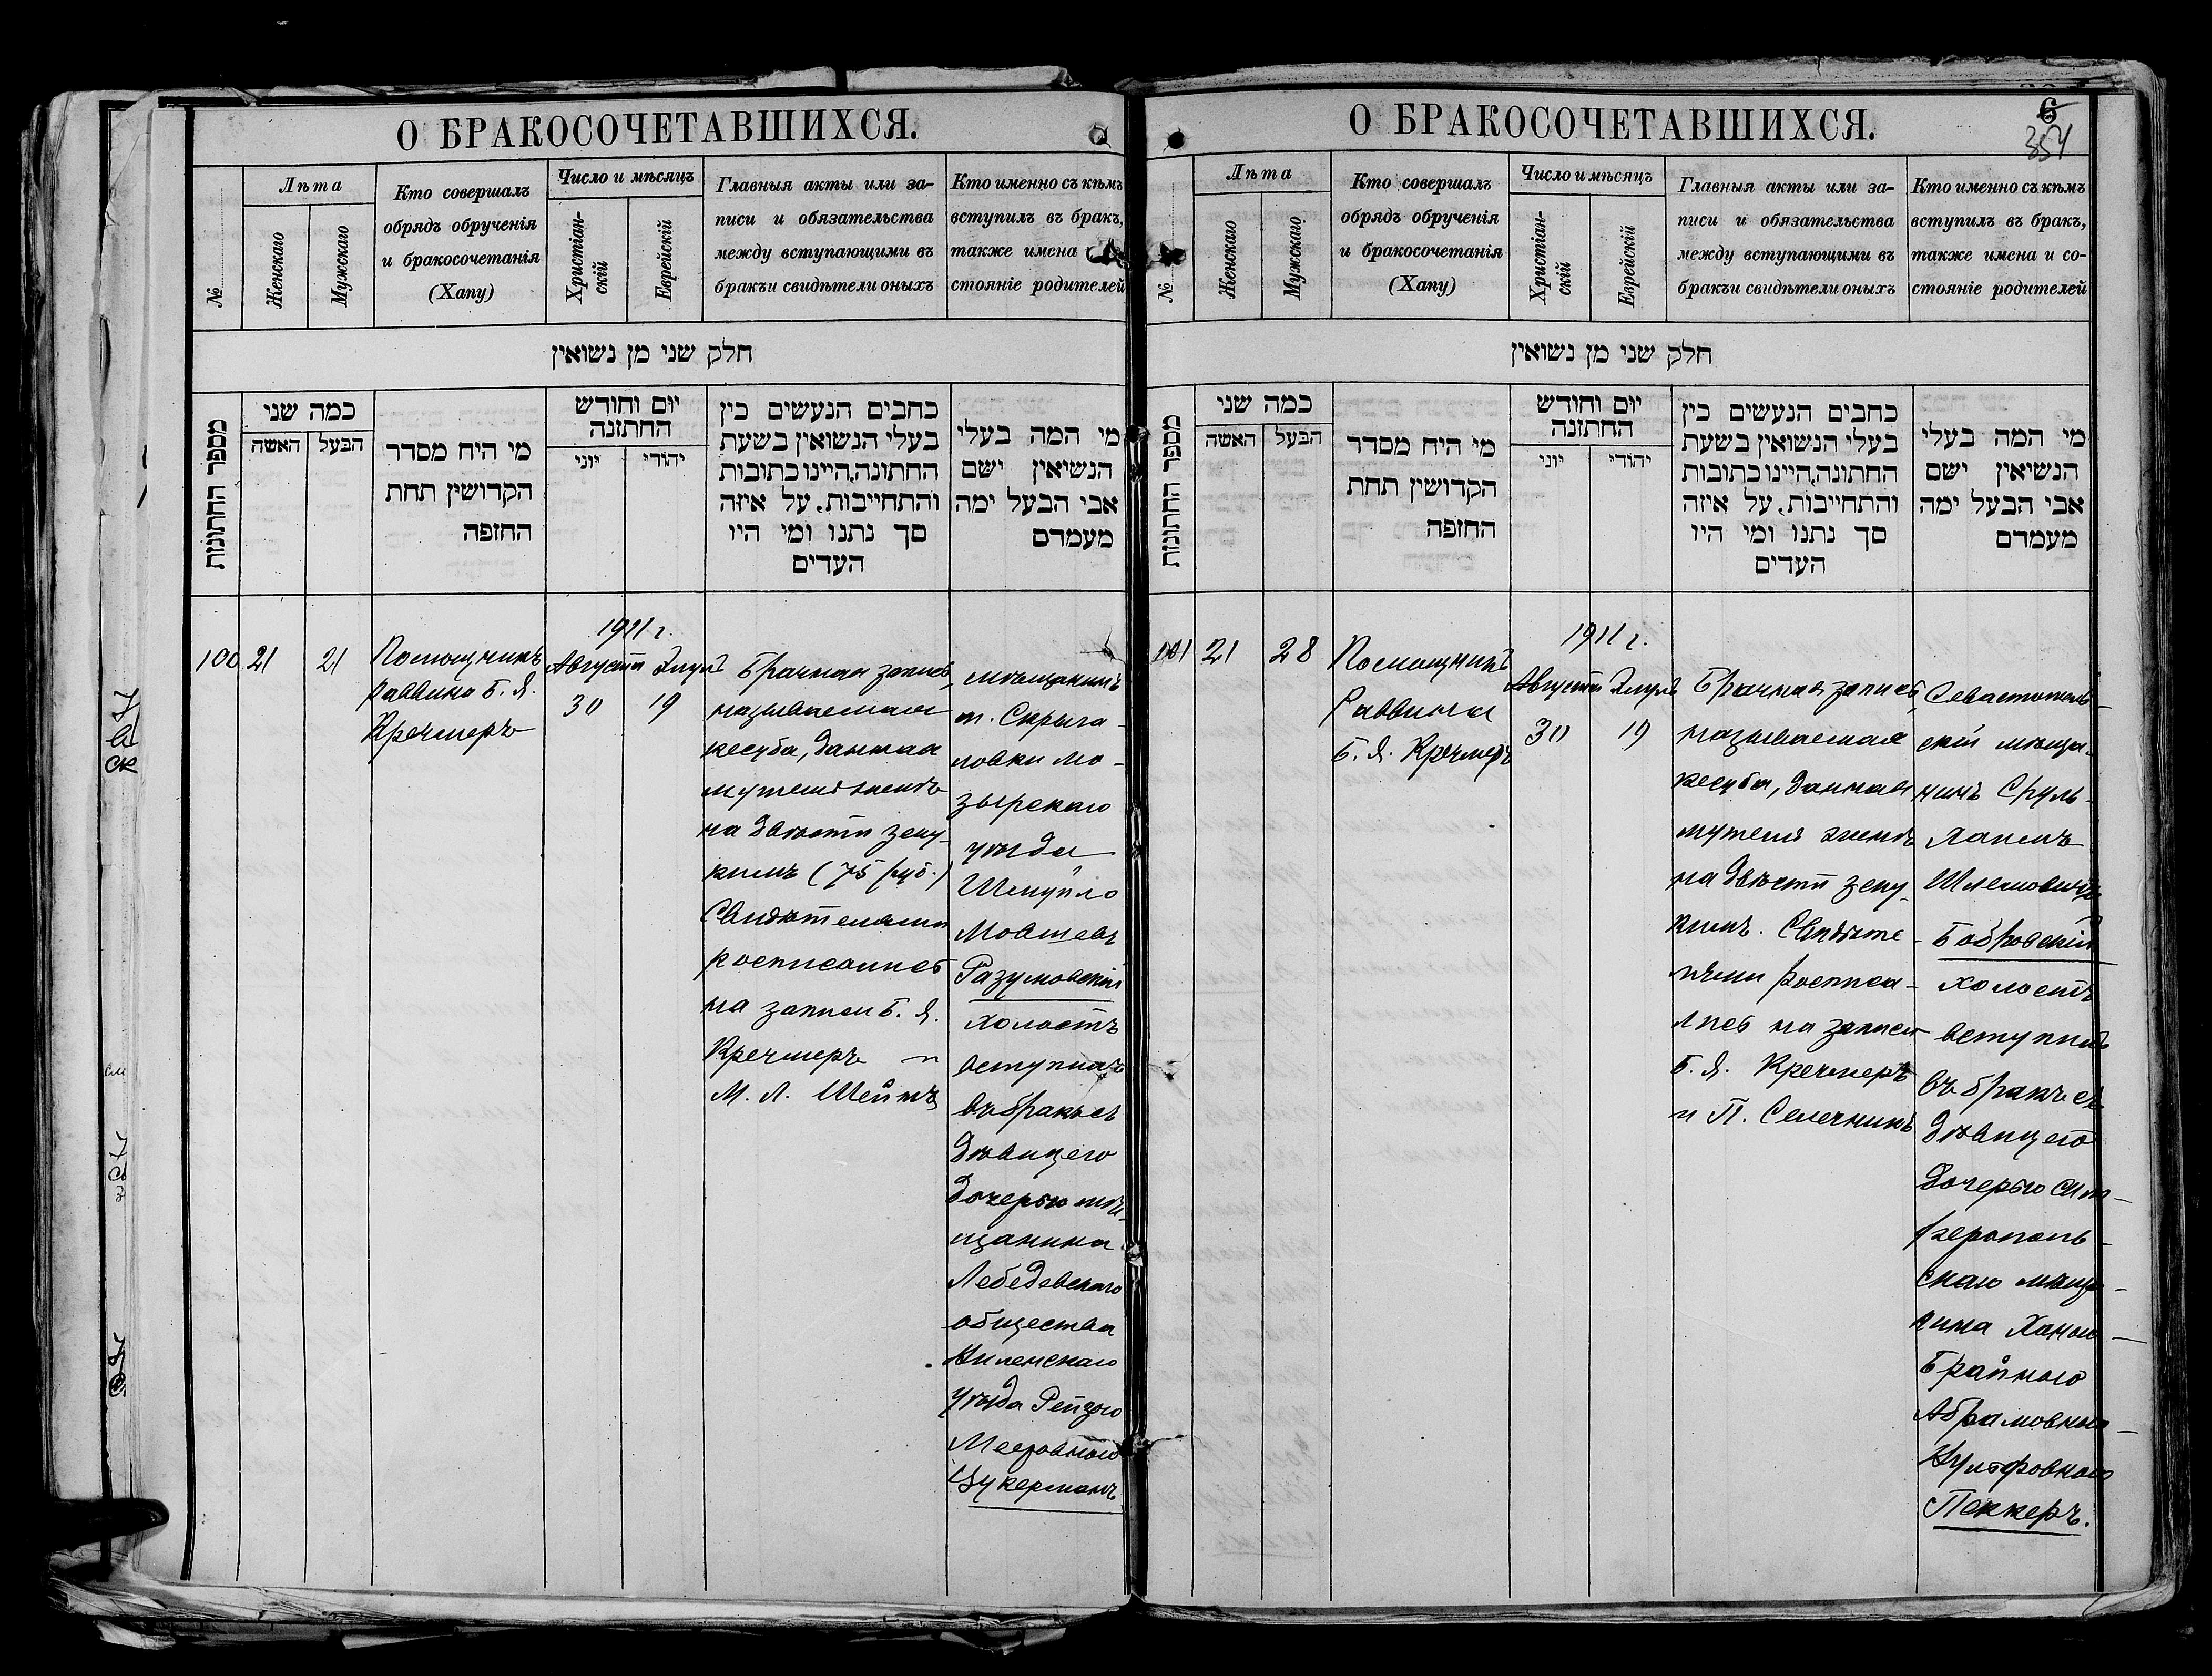 О БРАКОСОЧЕТАВШИХСЯ.
№
Лѣта
Женскаго
Мужскаго
Кто совершалъ
обрядъ обрученія
и бракосочетанія
(Хапу)
Число и мѣсяцъ
Христіан-
скій
Еврейскій
Главныя акты или за-
писи и обязательства
между вступающими въ
бракъи свидѣтели оныхъ
Кто именно съ кѣмъ
вступилъ въ бракъ,
также имена
стояніе родителей
חלק שני מן נשואין
מספר החתונות
כמה שני
האשה
הבעל
מי היח מסדר
הקדושין תחת
החופה
יום וחודש
החתונה
יוני
יהודי
כתבים הנעשים בין
בעלי הנשואין בשעת
החתונה,היינו כתובות
והתחייבות. על איזה
סך נתנו ומי היו
העדים
מי המה בעלי
הנשיאין ישם
אבי הבעל ימה
מעמדם
100
21
21
Помощникъ
раввина Б. Я.
Кречмеръ
1911 г.
Августа Элулъ
30 19
Брачная запись,
называемая
кесуба, данная
мужемъ женѣ
на двѣсти зеку-
кимъ (75 руб.)
Свидѣтелями
росписались
на записи Б. Я.
Кречмеръ и
М. Л. Шейнъ
мѣщанинъ
м. Скрыга-
ловки Мо-
зырскаго
уѣзда
Шмуйло
Мовшевъ
Разумовскій
холостъ
вступилъ
въ бракъ съ
дѣвицею
дочерью мѣ-
щанина
Лебедевскаго
общества
Виленскаго
уѣзда Рейзою
Мееровною
Цукерманъ
О БРАКОСОЧЕТАВШИХСЯ.
6
354
№
Лѣта
Женскаго
Мужскаго
Кто совершалъ
обрядъ обрученія
и бракосочетанія
(Хапу)
Число и мѣсяцъ
Христіан-
скій
Еврейскій
Главныя акты или за-
писи и обязательства
между вступающими въ
бракъи свидѣтели оныхъ
Кто именно съ кѣмъ
вступилъ въ бракъ,
также имена и со-
стояніе родителей
חלק שני מן נשואין
מספר החתונות
כמה שני
האשה
הבעל
מי היח מסדר
הקדושין תחת
החופה
יום וחודש
החתונה
יוני
יהודי
כתבים הנעשים בין
בעלי הנשואין בשעת
החתונה,היינו כתובות
והתחייבות. על איזה
סך נתנו ומי היו
העדים
מי המה בעלי
הנשיאין ישם
אבי הבעל ימה
מעמדם
101
21
28
Помощникъ
Раввина
Б. Я. Кречмеръ
1911 г.
Августа Элулъ
30 19
Брачная запись,
называемая
кесуба, данная
мужемъ женѣ
на двѣсти зеку-
кимъ. Свидѣте-
лями росписа-
лись на записи
Б. Я. Кречмеръ
и П. Селечникъ
Севастополь-
скій мѣща-
нинъ Сруль-
Хаимъ
Шлемовичъ
Бобровскій
холостъ
вступилъ
въ бракъ съ
дѣвицею
дочерью Сим-
ферополь-
скаго мѣща-
нина Ханою-
Брайною
Абрамовною-
Вульфовною
Пеккеръ.